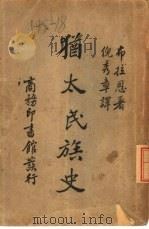 布拉恩著
倪秀章譯
猶太民族史
商務印書館發行